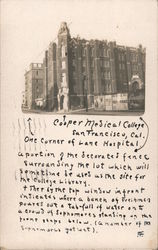 Cooper Medical College
San Francisco, Cal.
One Corner of Lane Hospital
a portion of the decorated fence
surrounding the lot which will
sometime be used as the site for
the College Library.
+ They by the top window in front
indicates where a bunch of freshmen
poured out a tub-full of water onto
a crowd of sophomores standing on the
stone steps below. (a number of
sophomores yet wet).